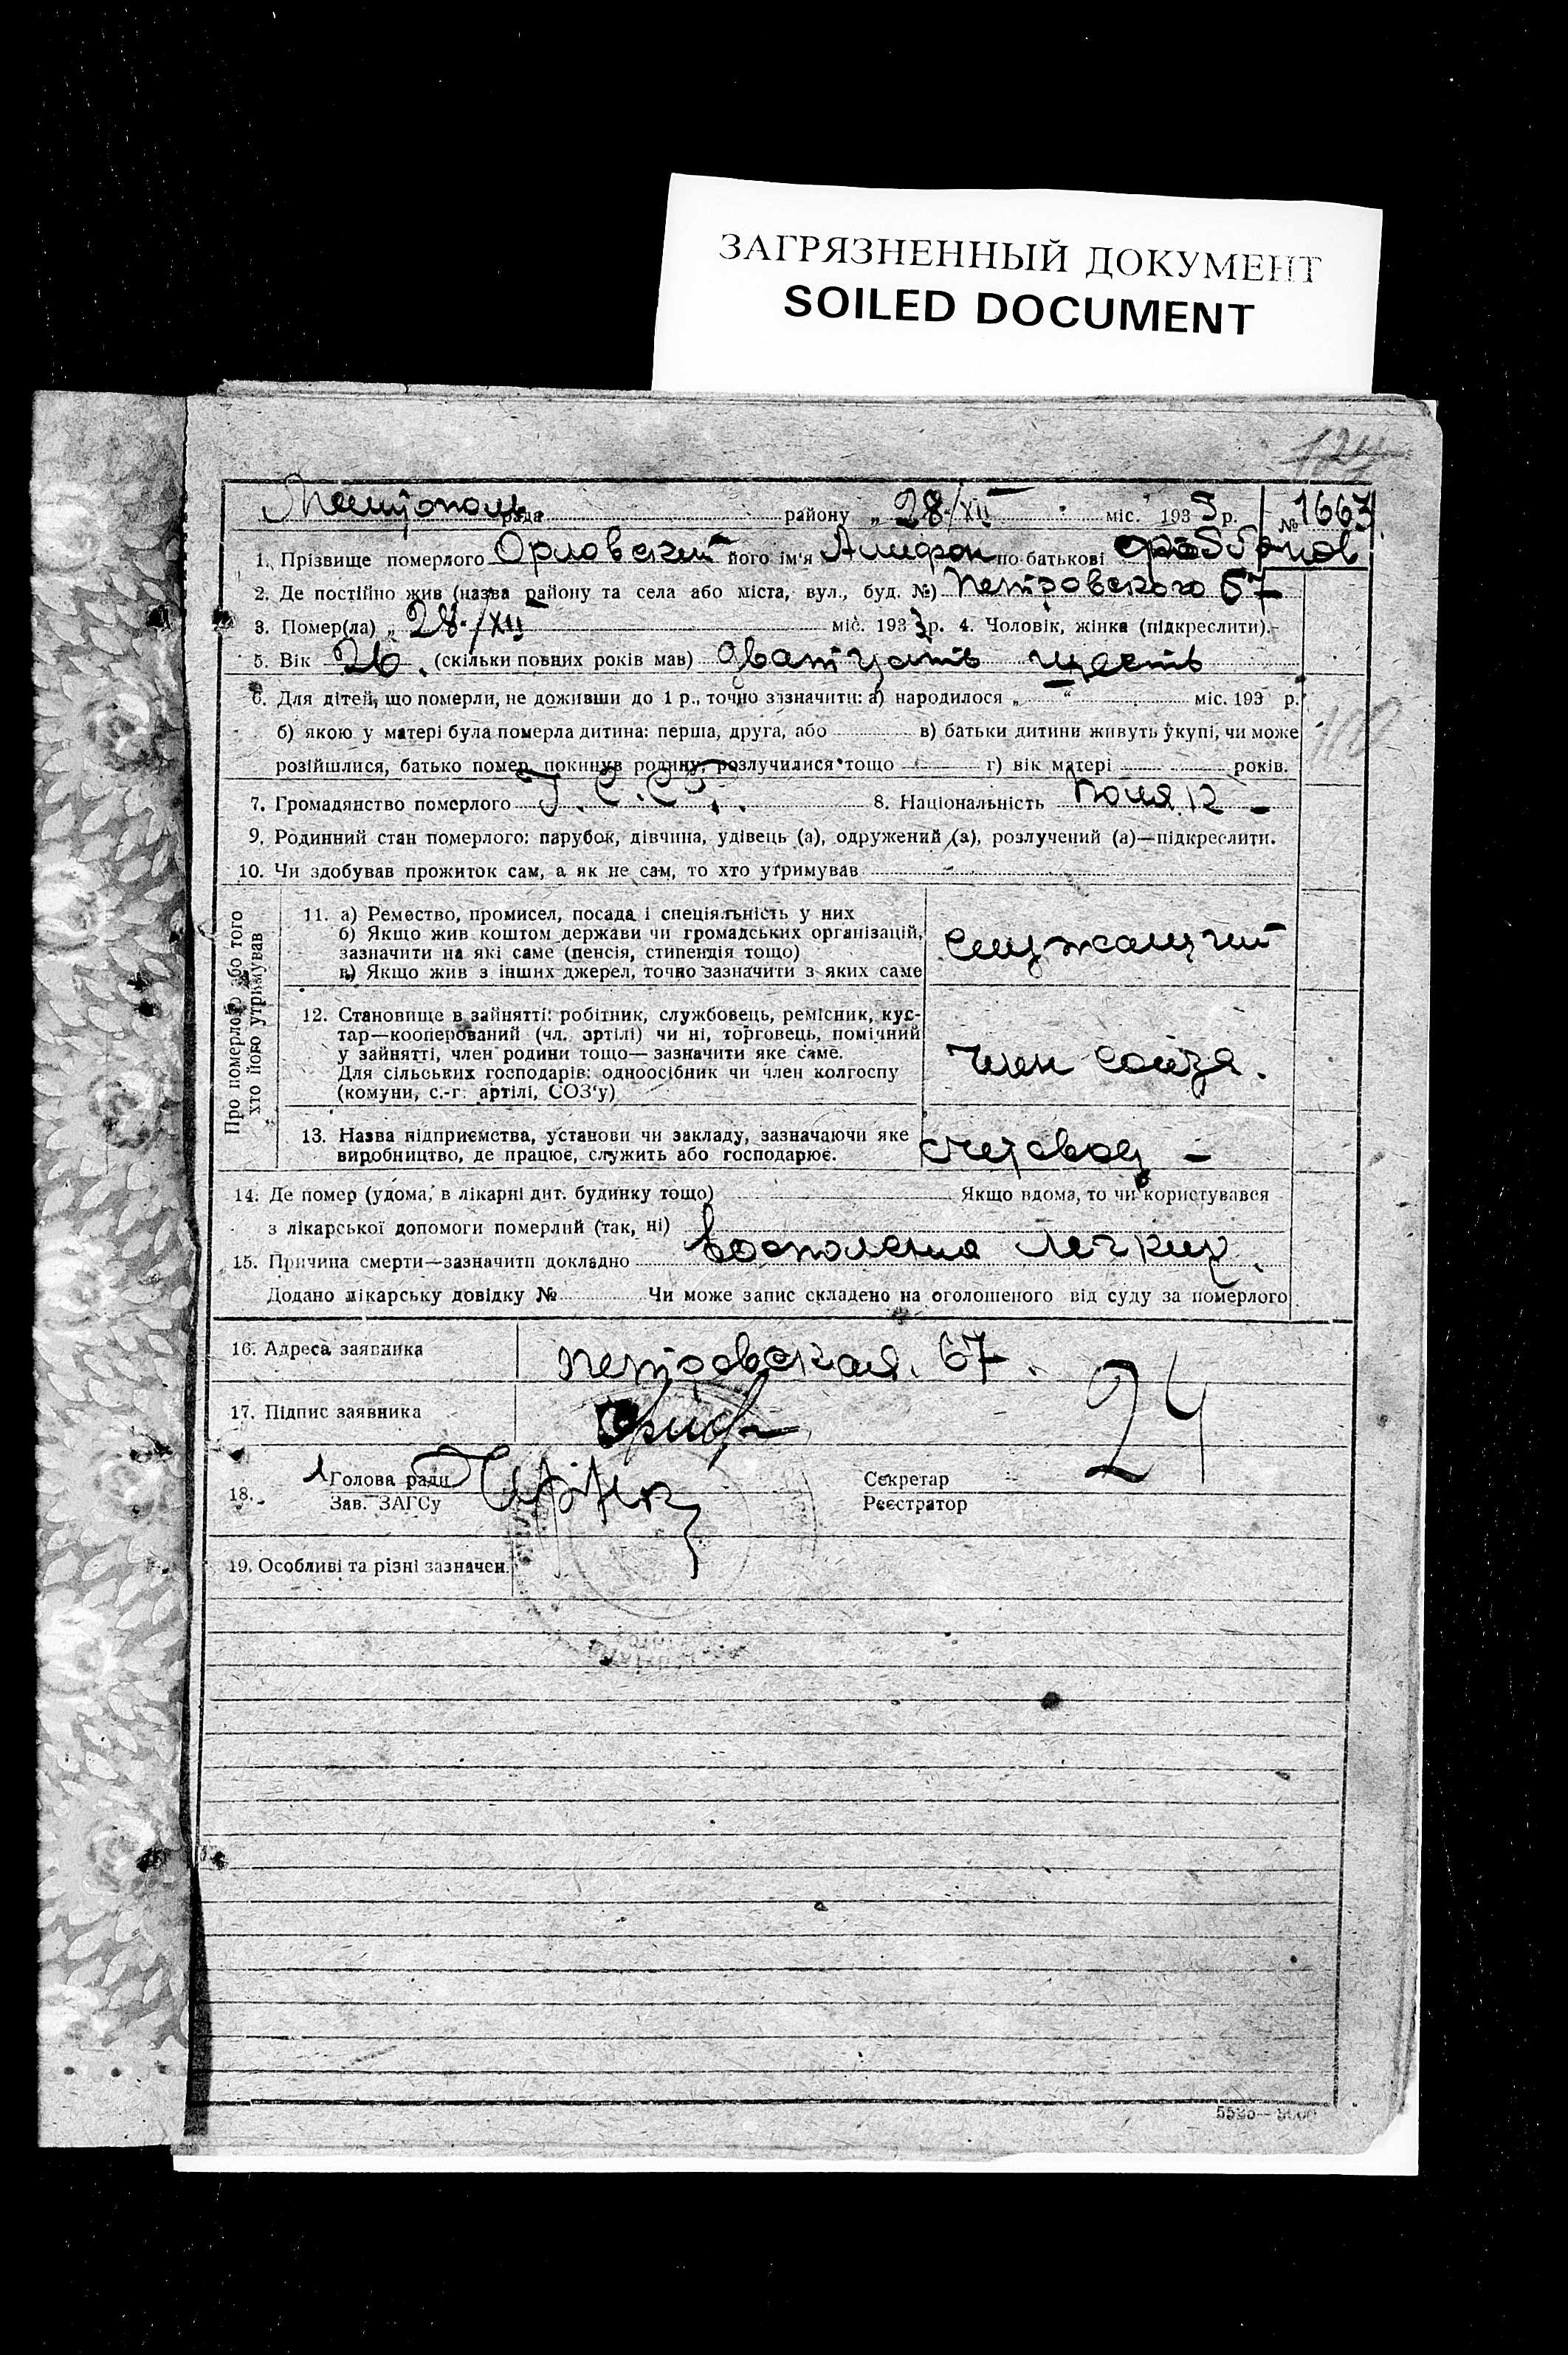 ЗАГРЯЗНЕННЫЙ ДОКУМЕНТ
SOILED DOCUMENT
124
рада району „ 28/XII міс. 1933 р. № 1663
1. Прізвище померлого Орловский його ім'я по батькові
2. Де постійно жив (назва району та села або міста, вул., буд. №) Петровского 67
3. Помер(ла) „ 28/XII міс. 1933 р. 4. Чоловік, жінка (підкреслити).
5. Вік 26. (скільки повних років мав) дватцать шесть
6. Для дітей, що померли, не доживши до 1 р., точно зазначити: а) народилося „ — “ міс. 193 р.
б) якою у матері була померла дитина: перша, друга, або в) батьки дитини живуть укупі, чи може
розійшлися, батько помер, покинув родину, розлучилися тощо г) вік матері років.
7. Громадянство померлого 8. Національність Поляк —
9. Родинний стан померлого: парубок, дівчина, удівець (а), одружений (а), розлучений (а)—підкреслити.
10. Чи здобував прожиток сам, а як не сам, то хто утримував
Про померлого або того
хто його утримував
11. а) Ремество, промисел, посада і спеціяльність у них
б) Якщо жив коштом держави чи громадських організацій,
зазначити на які саме (пенсія, стипендія тощо)
в) Якщо жив з інших джерел, точно зазначити з яких саме
служащий
12. Становище в зайнятті: робітник, службовець, ремісник, кус-
тар—кооперований (чл. артілі) чи ні, торговець, помічний
у зайнятті, член родини тощо— зазначити яке саме.
Для сільських господарів: одноосібник чи член колгоспу
(комуни, с.-г. артілі, СОЗ'у)
член союза.
13. Назва підприємства, установи чи закладу, зазначаючи яке
виробництво, де працює, служить або господарює.
счетовод —
14. Де помер (удома, в лікарні дит. будинку тощо) Якщо вдома, то чи користувався
з лікарської допомоги померлий (так, ні)
15. Причина смерти—зазначити докладно Восполения легких
Додано лікарську довідку № Чи може запис складено на оголошеного від суду за померлого
16. Адреса заявника Петровская. 67.
17. Підпис заявника
24
18. Голова ради Секретар
Зав. ЗАГСу Реєстратор
19. Особливі та різні зазначен.